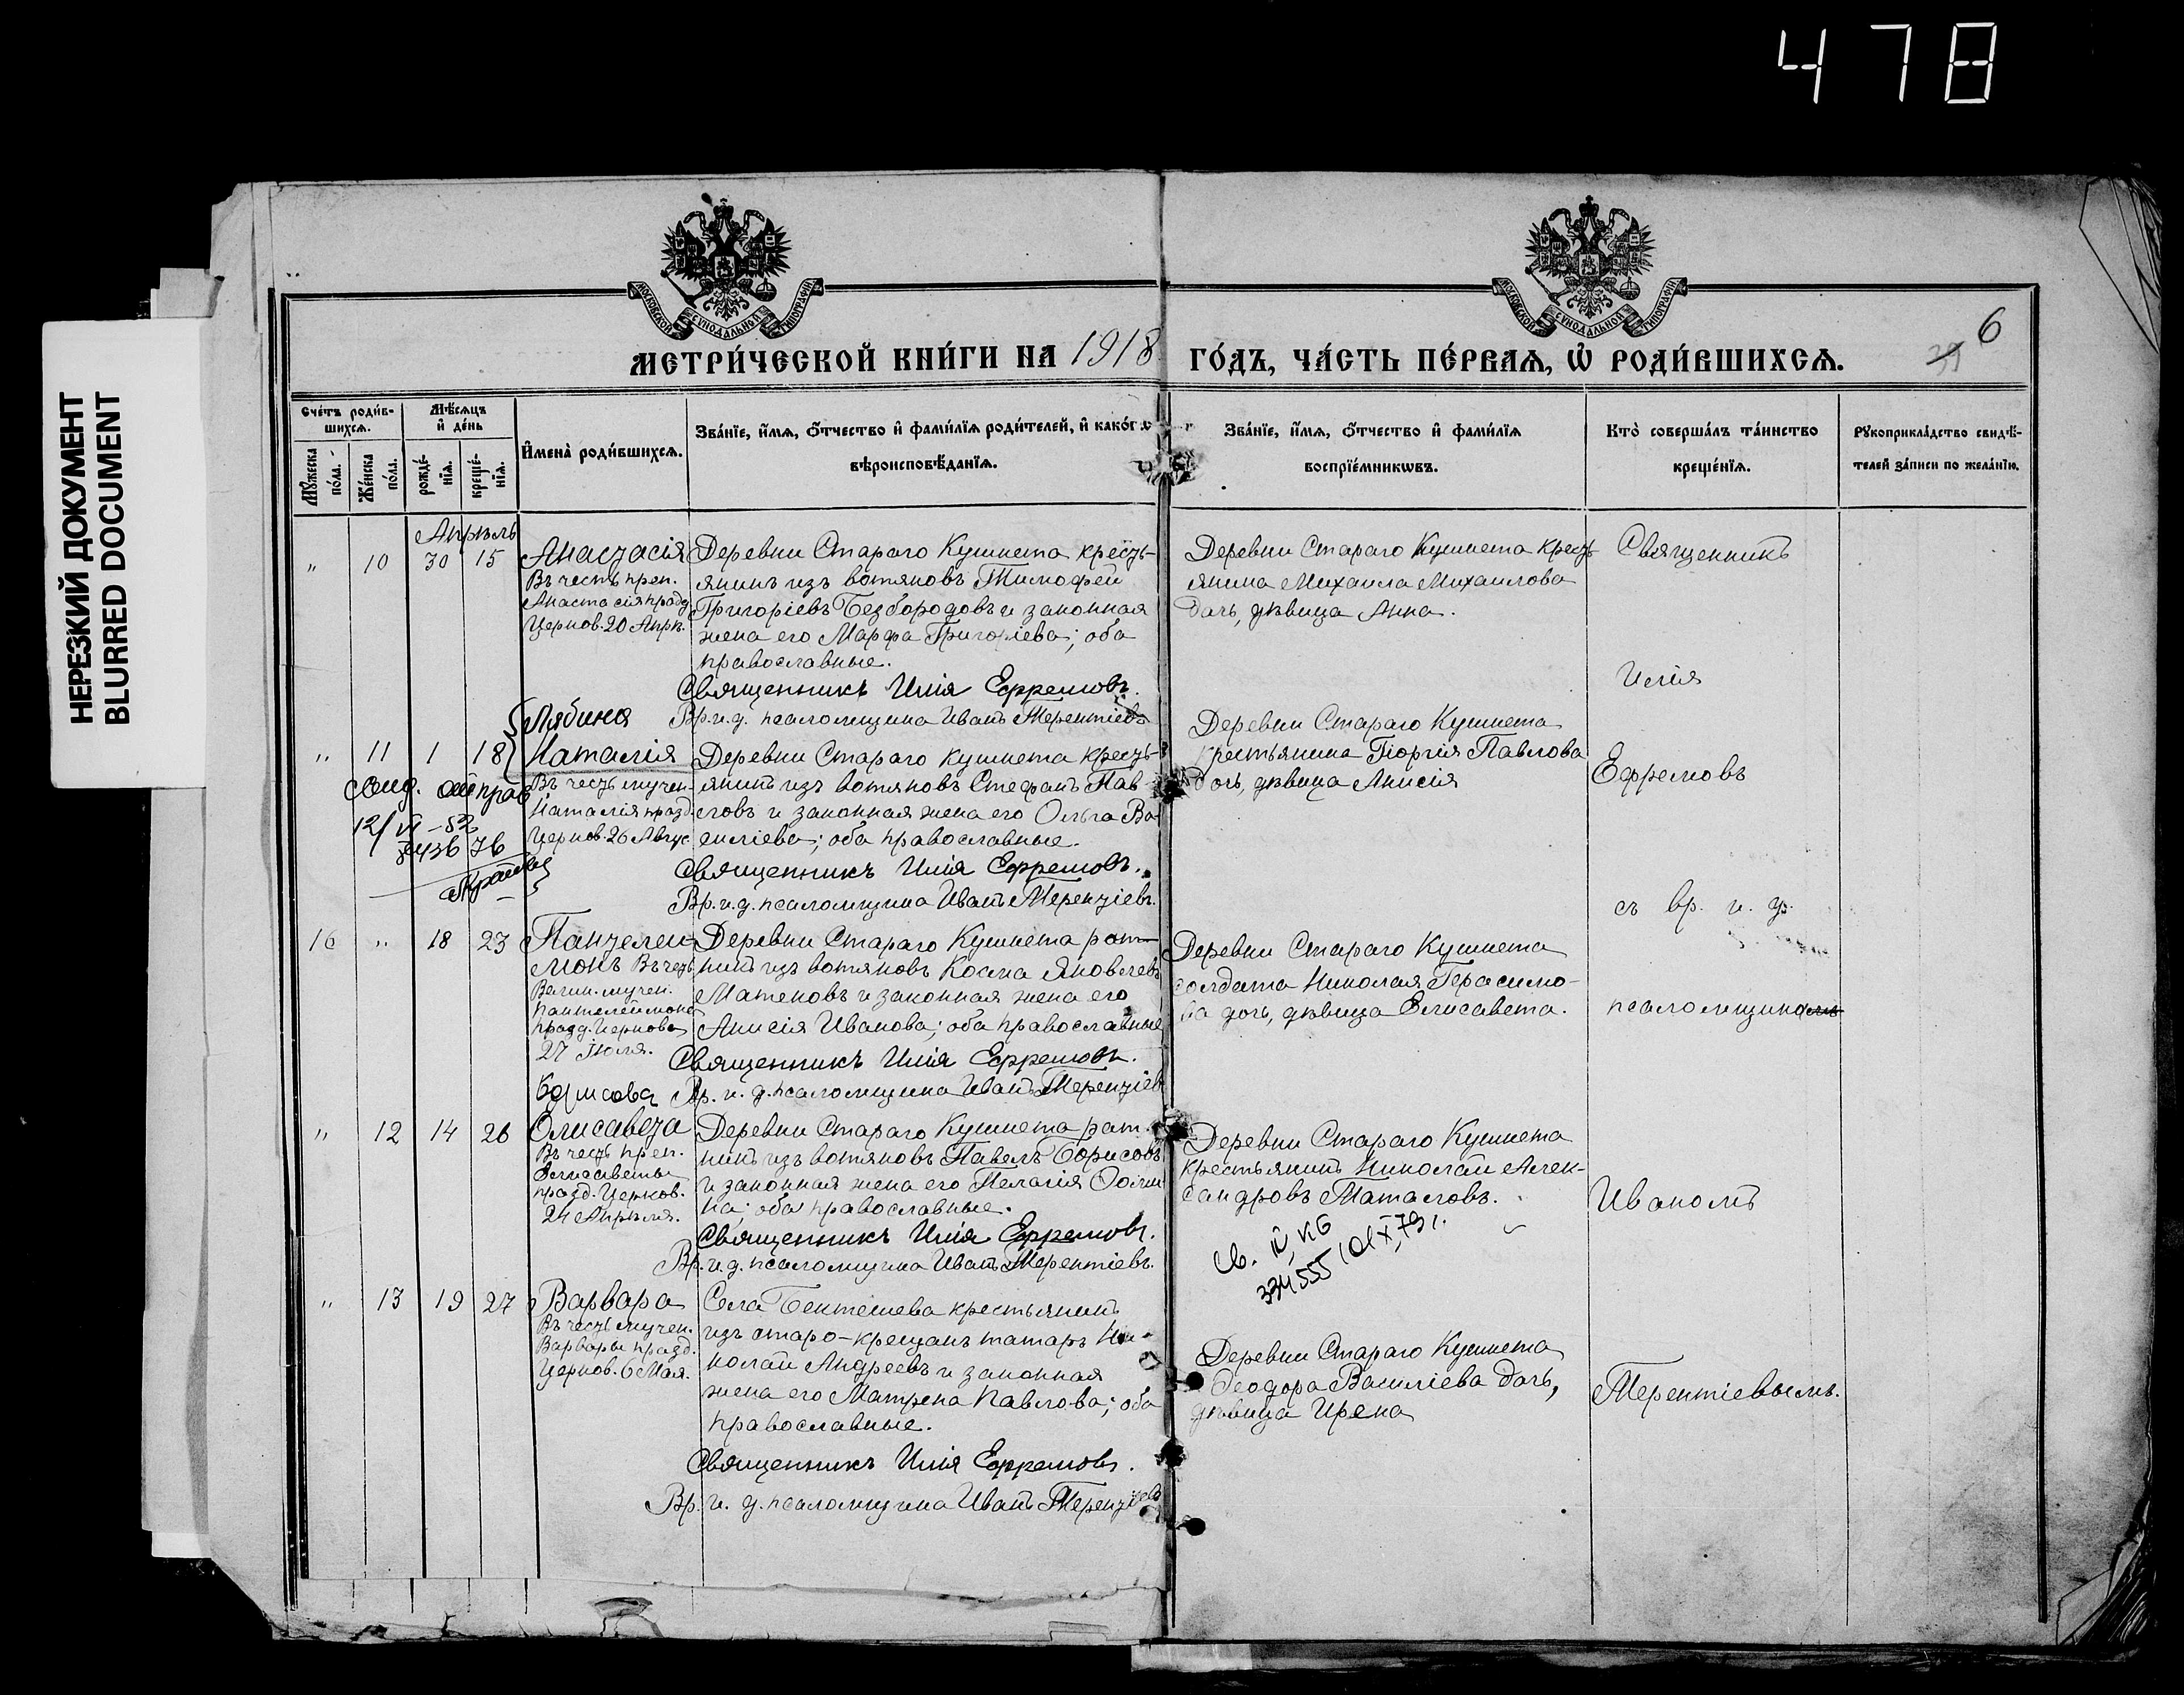 478
НЕРЕЗКИЙ ДОКУМЕНТ
BLURRED DOCUMENT
МОСКОВСКОЙ СУНОДАЛЬНОЙ ТИПОГРАФІИ
МОСКОВСКОЙ СУНОДАЛЬНОЙ ТИПОГРАФІИ
6
МЕТРИ́ЧЕСКОЙ КНИ́ГИ НА 1918 ГО́ДЪ, ЧА́СТЬ ПЕ́РВАѦ, Ѡ҆ РОДИ́ВШИХСѦ.
Сче́тъ роди́в-
шихсѧ.
Мѣ́сѧцъ
и҆ де́нь
Мꙋ́жеска
по́ла.
Же́нска
по́ла.
рожде́-
нїѧ.
креще́-
нїѧ.
И҆мена̀ роди́вшихсѧ.
Зва́нїе, и҆́мѧ, ѻ҆́тчество и҆ фами́лїѧ роди́телей, и҆ како́гѡ
вѣроисповѣ́данїѧ.
Зва́нїе, и҆́мѧ, ѻ҆́тчество и҆ фами́лїѧ
воспрїе́мникѡвъ.
Кто̀ соверша́лъ та́инство
креще́нїѧ.
Рꙋкоприкла́дство свидѣ́-
телей за́писи по жела́нїю.
Апрѣль
" 10 30 15 Анастасія
Въ честь преп.
Анастасія празд.
Церков. 20 Апрѣ.
Деревни Стараго Кушкета кресть-
янинъ изъ вотяковъ Тимофей
Григоріевъ Безбородовъ и законная
жена его Марфа Григоріева; оба
православные.
Священникъ Илія Ефремовъ.
Вр. и. д. псаломщика Иванъ Терентіевъ
Деревни Стараго Кушкета кресть-
янина Михаила Михаилова
дочь, дѣвица Анна.
Священникъ
Илія
Ефремовъ
съ вр. и. д.
псаломщикомъ
Иваномъ
Терентіевымъ.
Лябина
" 11 1 18 Наталія
Въ честь мучен.
Наталія празд.
Церков. 26 Авгус.
12/VI-52
Деревни Стараго Кушкета кресть-
янинъ изъ вотяковъ Стефанъ Пав-
ловъ и законная жена его Ольга Ва-
силіева; оба православные.
Священникъ Илія Ефремовъ.
Вр. и. д. псаломщика Иванъ Терентіевъ.
Деревни Стараго Кушкета
крестьянина Гіоргія Павлова
дочь, дѣвица Анисія
16 " 18 23 Пантелеи-
монъ Въ честь
Велик. мучен.
Пантелеимона
празд. Церковв
27 Іюля.
Деревни Стараго Кушкета рат-
никъ изъ вотяковъ Косма Яковлевъ
Матековъ и законная жена его
Анисія Иванова; оба православные
Священникъ Илія Ефремовъ.
Вр. и. д. псаломщика Иванъ Терентіевъ
Деревни Стараго Кушкета
солдата Николая Герасимо-
ва дочь, дѣвица Елисавета.
Борисова
" 12 14 26 Елисавета
Въ честь преп.
Елисаветы
празд. Церков.
24 Апрѣля.
Деревни Стараго Кушкета рат-
никъ изъ вотяковъ Павелъ Борисовъ
и законная жена его Пелагія
на; оба православные.
Священникъ Илія Ефремовъ.
Вр. и. д. псаломщика Иванъ Терентіевъ.
Деревни Стараго Кушкета
крестьянинъ Николай Алек-
сандровъ Маталовъ.
334555
" 13 19 27 Варвара
Въ честь мучен.
Варвары празд.
Церков. 6 Мая.
Села Бектешева крестьянинъ
изъ старо-крещанъ татаръ Ни-
колай Андреевъ и законная
жена его Матрена Павлова; оба
православные.
Священникъ Илія Ефремовъ.
Вр. и. д. псаломщика Иванъ Терентіевъ
Деревни Стараго Кушкета
Ѳеодора Василіева дочь,
дѣвица Ирена